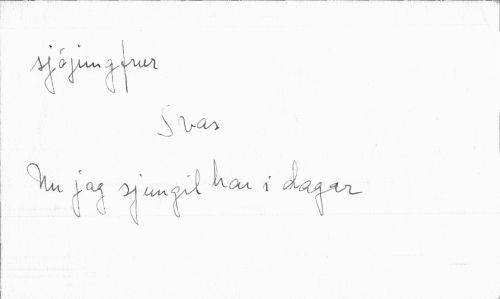 sjöjungfrur
Svas
Nu jag sjungit har i dagar